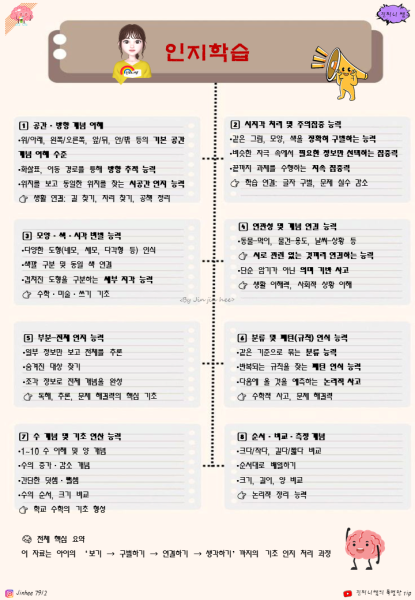 진히니 쌤
인지학습
1 공간·방향 개념 이해
•위/아래, 왼쪽/오른쪽, 앞/뒤, 안/밖 등의 기본 공간
개념 이해 수준
•화살표, 이동 경로를 통해 방향 추적 능력
•위치를 보고 동일한 위치를 찾는 시공간 인지 능력
생활 연결: 길 찾기, 자리 찾기, 공책 정리
2 시지각 처리 및 주의집중 능력
•같은 그림, 모양, 색을 정확히 구별하는 능력
•비슷한 자극 속에서 필요한 정보만 선택하는 집중력
•끝까지 과제를 수행하는 지속 집중력
학습 연결: 글자 구별, 문제 실수 감소
3 모양·색·시각 변별 능력
•다양한 도형(네모, 세모, 다각형 등) 인식
•색깔 구분 및 동일 색 연결
•겹쳐진 도형을 구분하는 세부 지각 능력
수학·미술·쓰기 기초
4 연관성 및 개념 연결 능력
•동물–먹이, 물건–용도, 날씨–상황 등
서로 관련 있는 것끼리 연결하는 능력
•단순 암기가 아닌 의미 기반 사고
생활 이해력, 사회적 상황 이해
<By Jin jin hee>
5 부분–전체 인지 능력
•일부 정보만 보고 전체를 추론
•숨겨진 대상 찾기
•조각 정보로 전체 개념을 완성
독해, 추론, 문제 해결력의 핵심 기초
6 분류 및 패턴(규칙) 인지 능력
•같은 기준으로 묶는 분류 능력
•반복되는 규칙을 찾는 패턴 인지 능력
•다음에 올 것을 예측하는 논리적 사고
수학적 사고, 문제 해결력
7 수 개념 및 기초 연산 능력
•1~10 수 이해 및 양 개념
•수의 증가·감소 개념
•간단한 덧셈·뺄셈
•수의 순서, 크기 비교
학교 수학의 기초 형성
8 순서·비교·측정 개념
•크다/작다, 길다/짧다 비교
•순서대로 배열하기
•크기, 길이, 양 비교
논리적 정리 능력
전체 핵심 요약
이 자료는 아이의 '보기 → 구별하기 → 연결하기 → 생각하기' 까지의 기초 인지 처리 과정
Jinhee 7912
진히니쌤의 특별한 tip